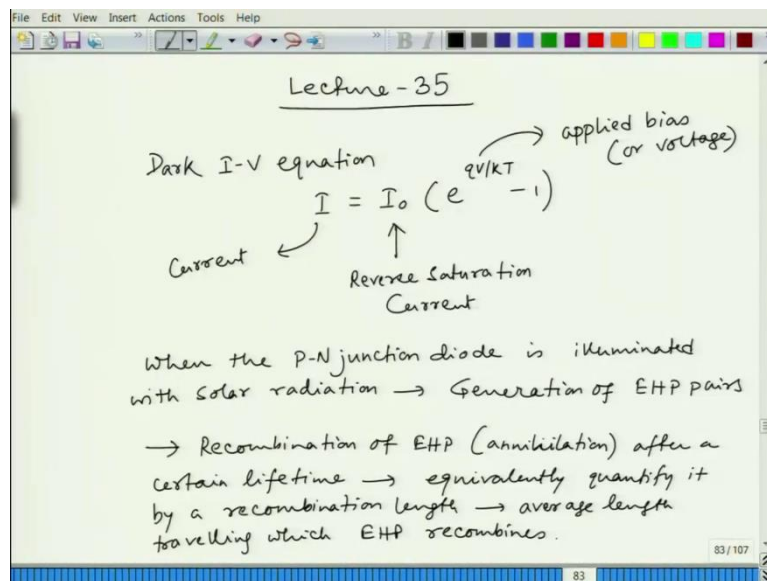 File Edit View Insert Actions Tools Help
Lecture - 35
Dark I-V equation
applied bias
(or voltage)
I = I₀ (e^qV/KT - 1)
Current
Reverse Saturation
Current
When the P-N junction diode is illuminated
with solar radiation → Generation of EHP pairs
→ Recombination of EHP (annihilation) after a
certain lifetime → equivalently quantify it
by a recombination length → average length
travelling which EHP recombines.
83/107
83